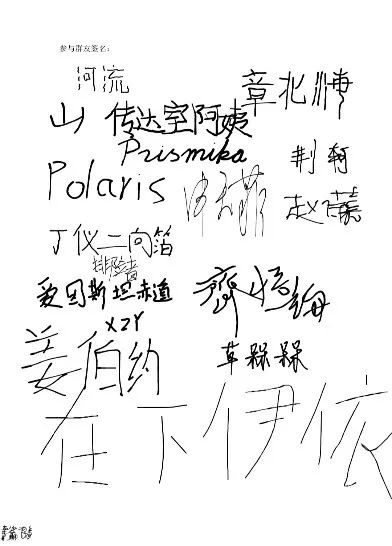 参与群友签名:
河流
章北海
山 传达室阿姨
Prismika
荆轲
Polaris
赵襄
丁仪二向箔
排险者
爱因斯坦赤道
XZY
姜伯约
草槑槑
在下伊依